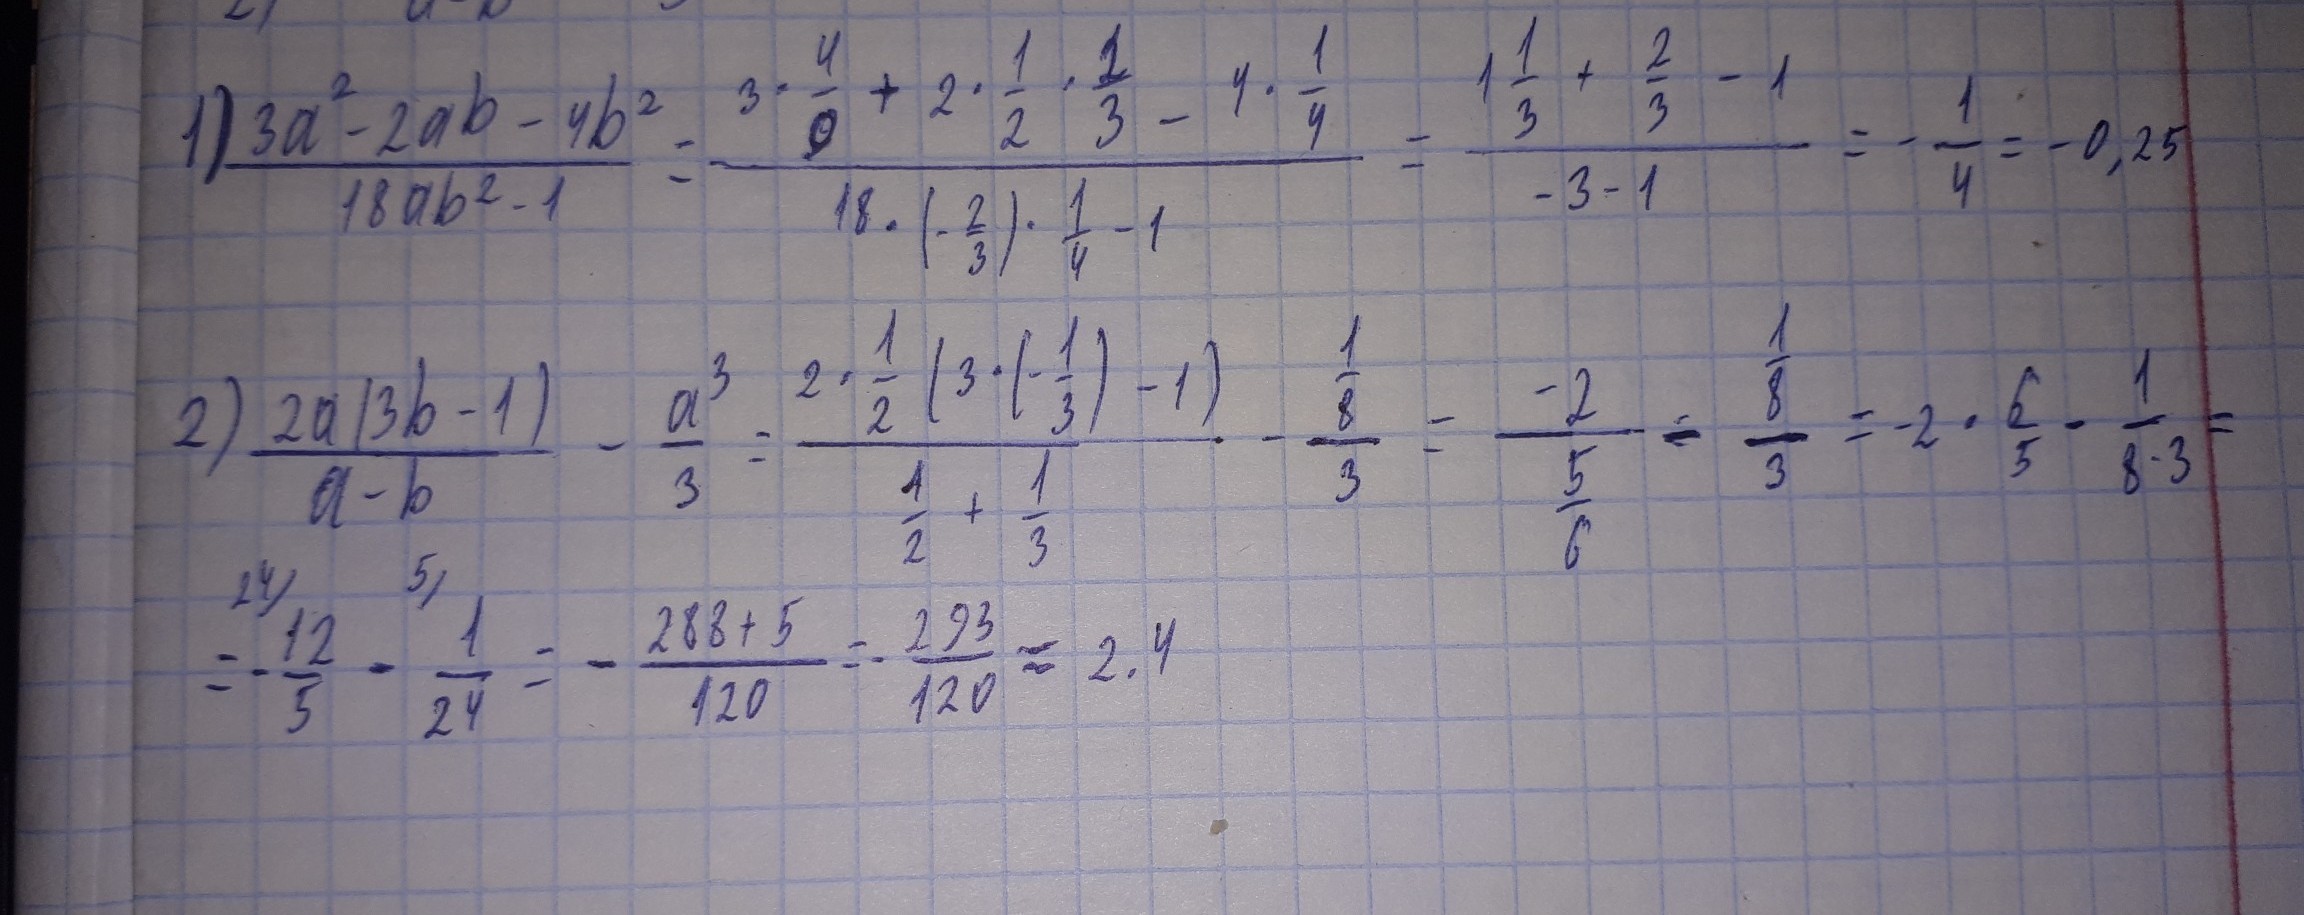 1) (3a² - 2ab - 4b²)/(18ab² - 1) = (3 · 4/9 + 2 · 1/2 · 2/3 - 4 · 1/4)/(18 · (-2/3) · 1/4 - 1) = (1 1/3 + 2/3 - 1)/(-3 - 1) = -1/4 = -0,25
2) (2a(3b - 1))/(a - b) - a³/3 = (2 · 1/2 (3 · (-1/3) - 1))/(1/2 + 1/3) - (1/8)/3 = (-2)/(5/6) - (1/8)/3 = -2 · 6/5 - 1/(8·3) =
= -12/5 (24/ - 1/24 (5/ = -(288+5)/120 = -293/120 ≈ 2.4